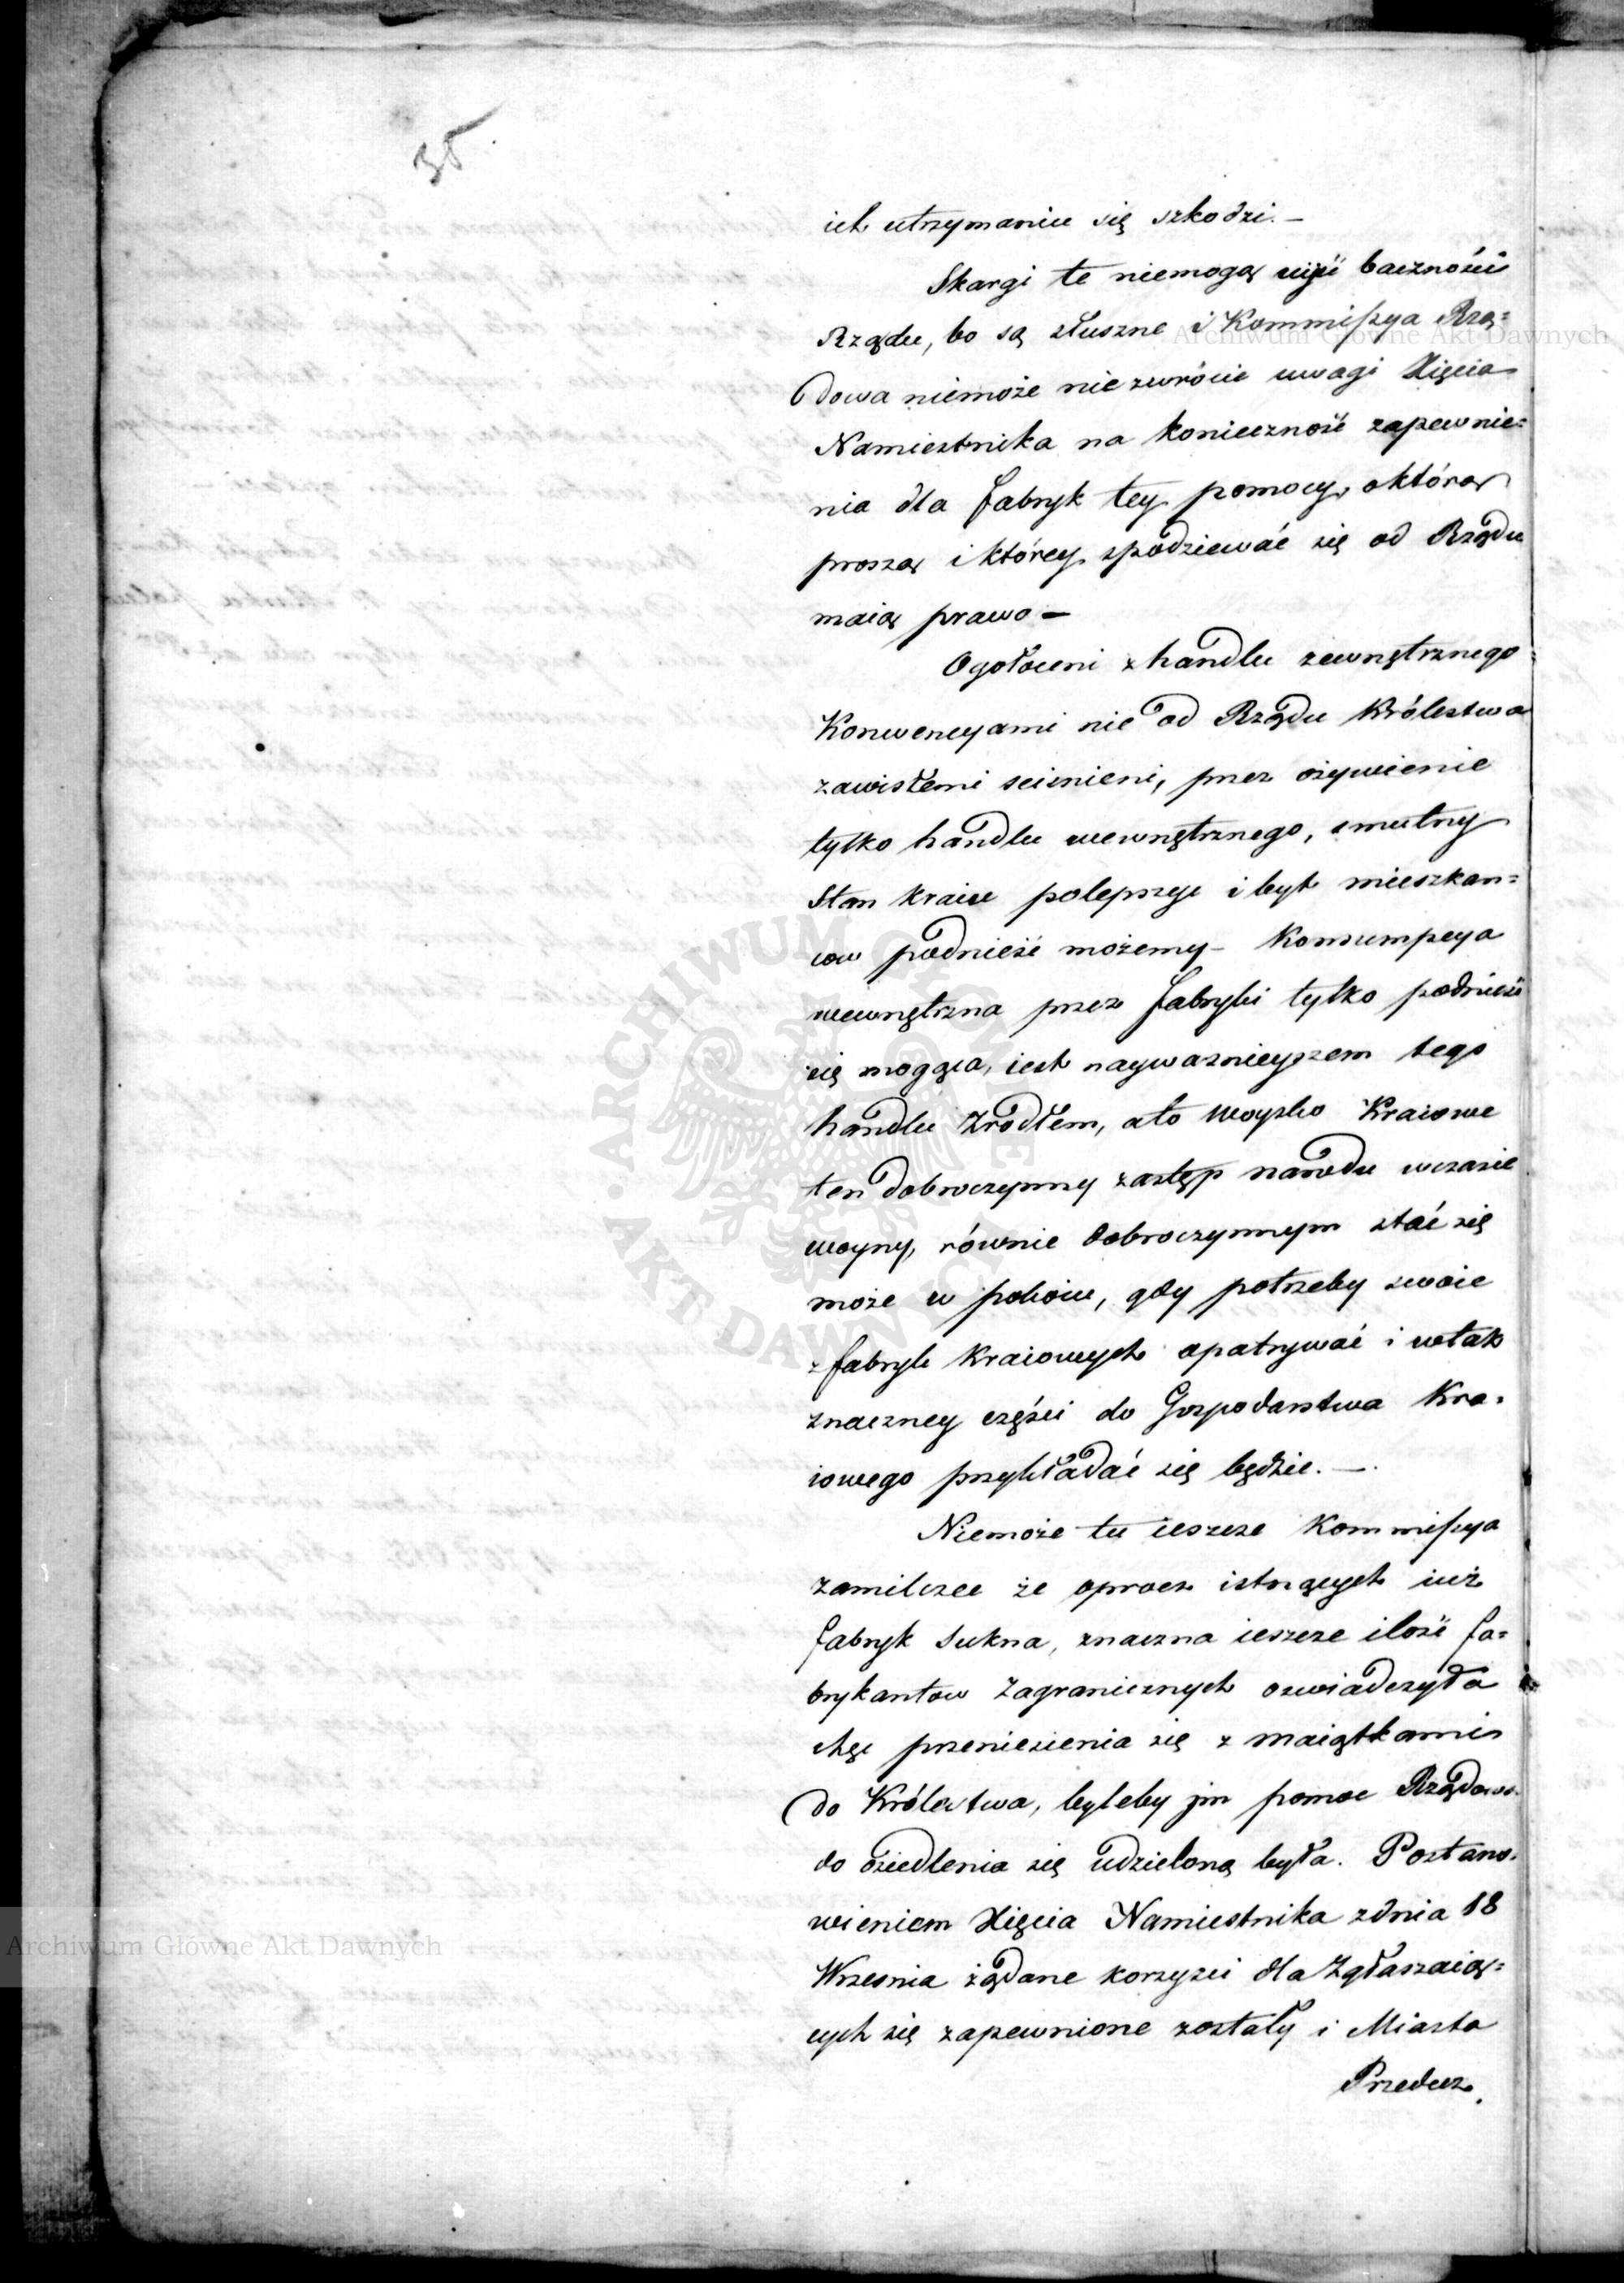 35
ich utrzymaniu się szkodzi. —
Skargi te niemogą uyść baczności
Rządu, bo są słuszne i Kommissya Rzą=
dowa niemoże nie zwrócić uwagi Xięcia
Namiestnika na konieczność zapewnie=
nia dla fabryk tey pomocy, o którą
proszą i którey spodziewać się od Rządu
maią prawo —
Ogołoceni z handlu zewnętrznego
Konwencyami nie od Rządu Królestwa
zawisłemi scisnieni, przez ożywienie
tylko handlu wewnętrznego, smutny
Stan kraiu polepszyć i byt mieszkan=
ców podnieść możemy — Konsumpcya
wewnętrzna przez fabryki tylko podnieść
się mogąca, iest nayważnieyszem tego
handlu Zrodłem, a to Woysko Kraiowe
ten dobroczynny zastęp narodu w czasie
woyny, równie dobroczynnym stać się
może w pokoiu, gdy potrzeby swoie
z fabryk Kraiowych opatrywać i w tak
znaczney części do Gospodarstwa Kra=
iowego przykładać się będzie. —
Niemoże tu ieszcze Kommissya
zamilczeć że oprocz istnących iuż
fabryk Sukna, znaczna ieszcze ilość fa=
brykantow Zagranicznych oswiadczyła
chęć przeniesienia się z maiątkami
do Królestwa, byleby jm pomoc Rządowa
do osiedlenia się udzieloną była. Postano=
wieniem Xięcia Namiestnika z dnia 18
Wrzesnia żądane korzyści dla Zgłaszaią=
cych się zapewnione zostały i Miasta
Przedecz.
Archiwum Główne Akt Dawnych
Archiwum Główne Akt Dawnych
ARCHIWUM GŁÓWNE • AKT DAWNYCH •